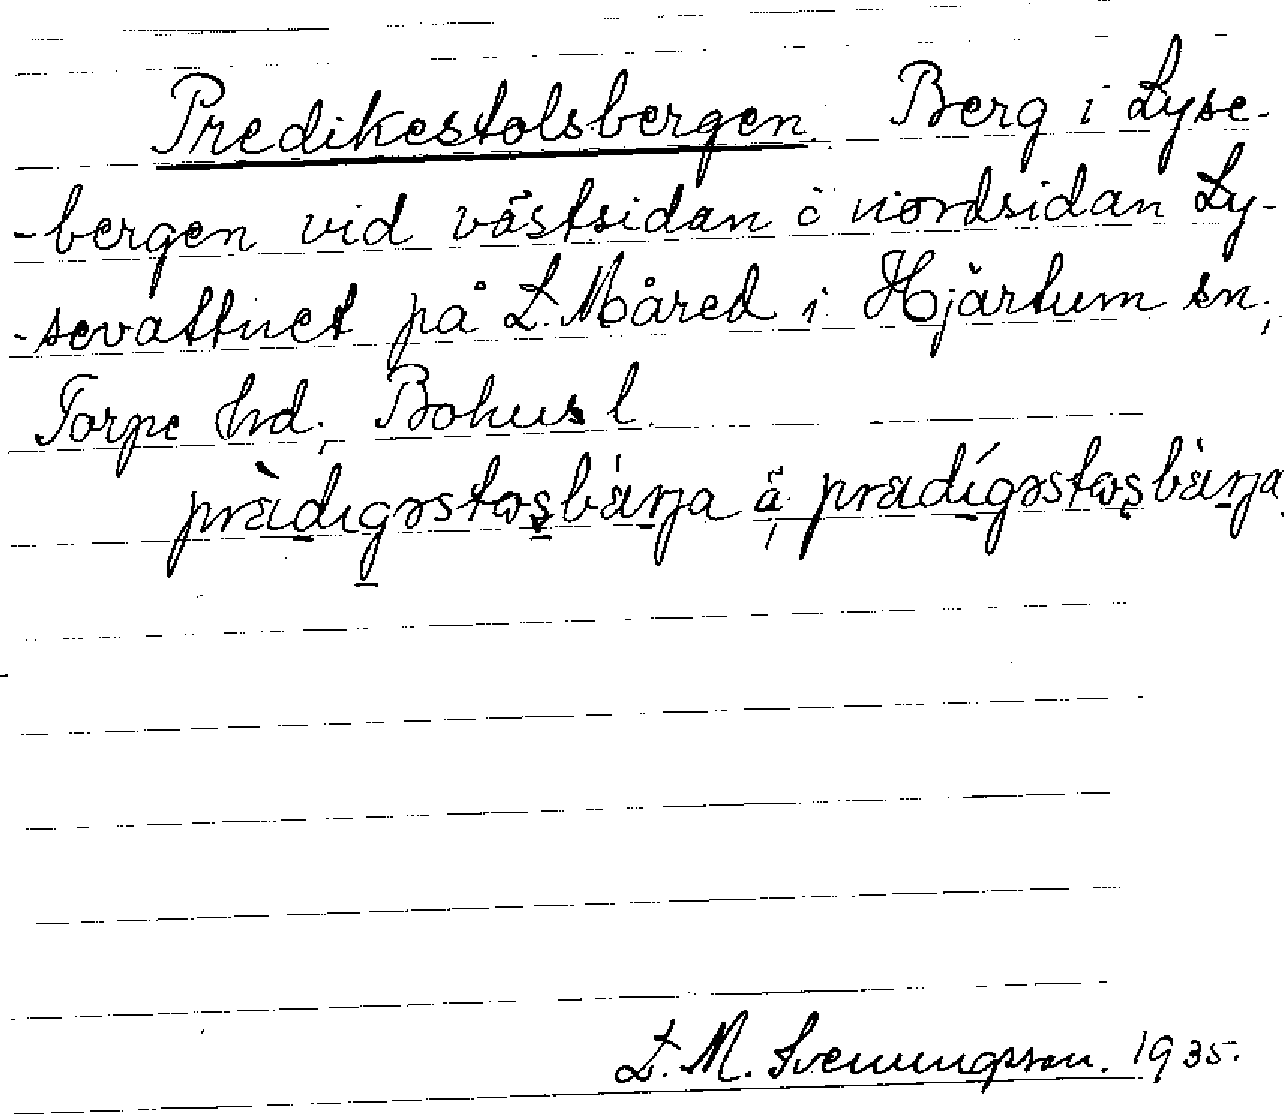 Predikestolsbergen. Berg i Lyse-
-bergen vid västsidan o nordsidan Ly-
-sevattnet på L. Måred i Hjärtum sn,
Torpe hd, Bohusl.
prädıgəstɷşbärja å, prädígəstɷşbärja.
L. M. Svenungsson. 1935.